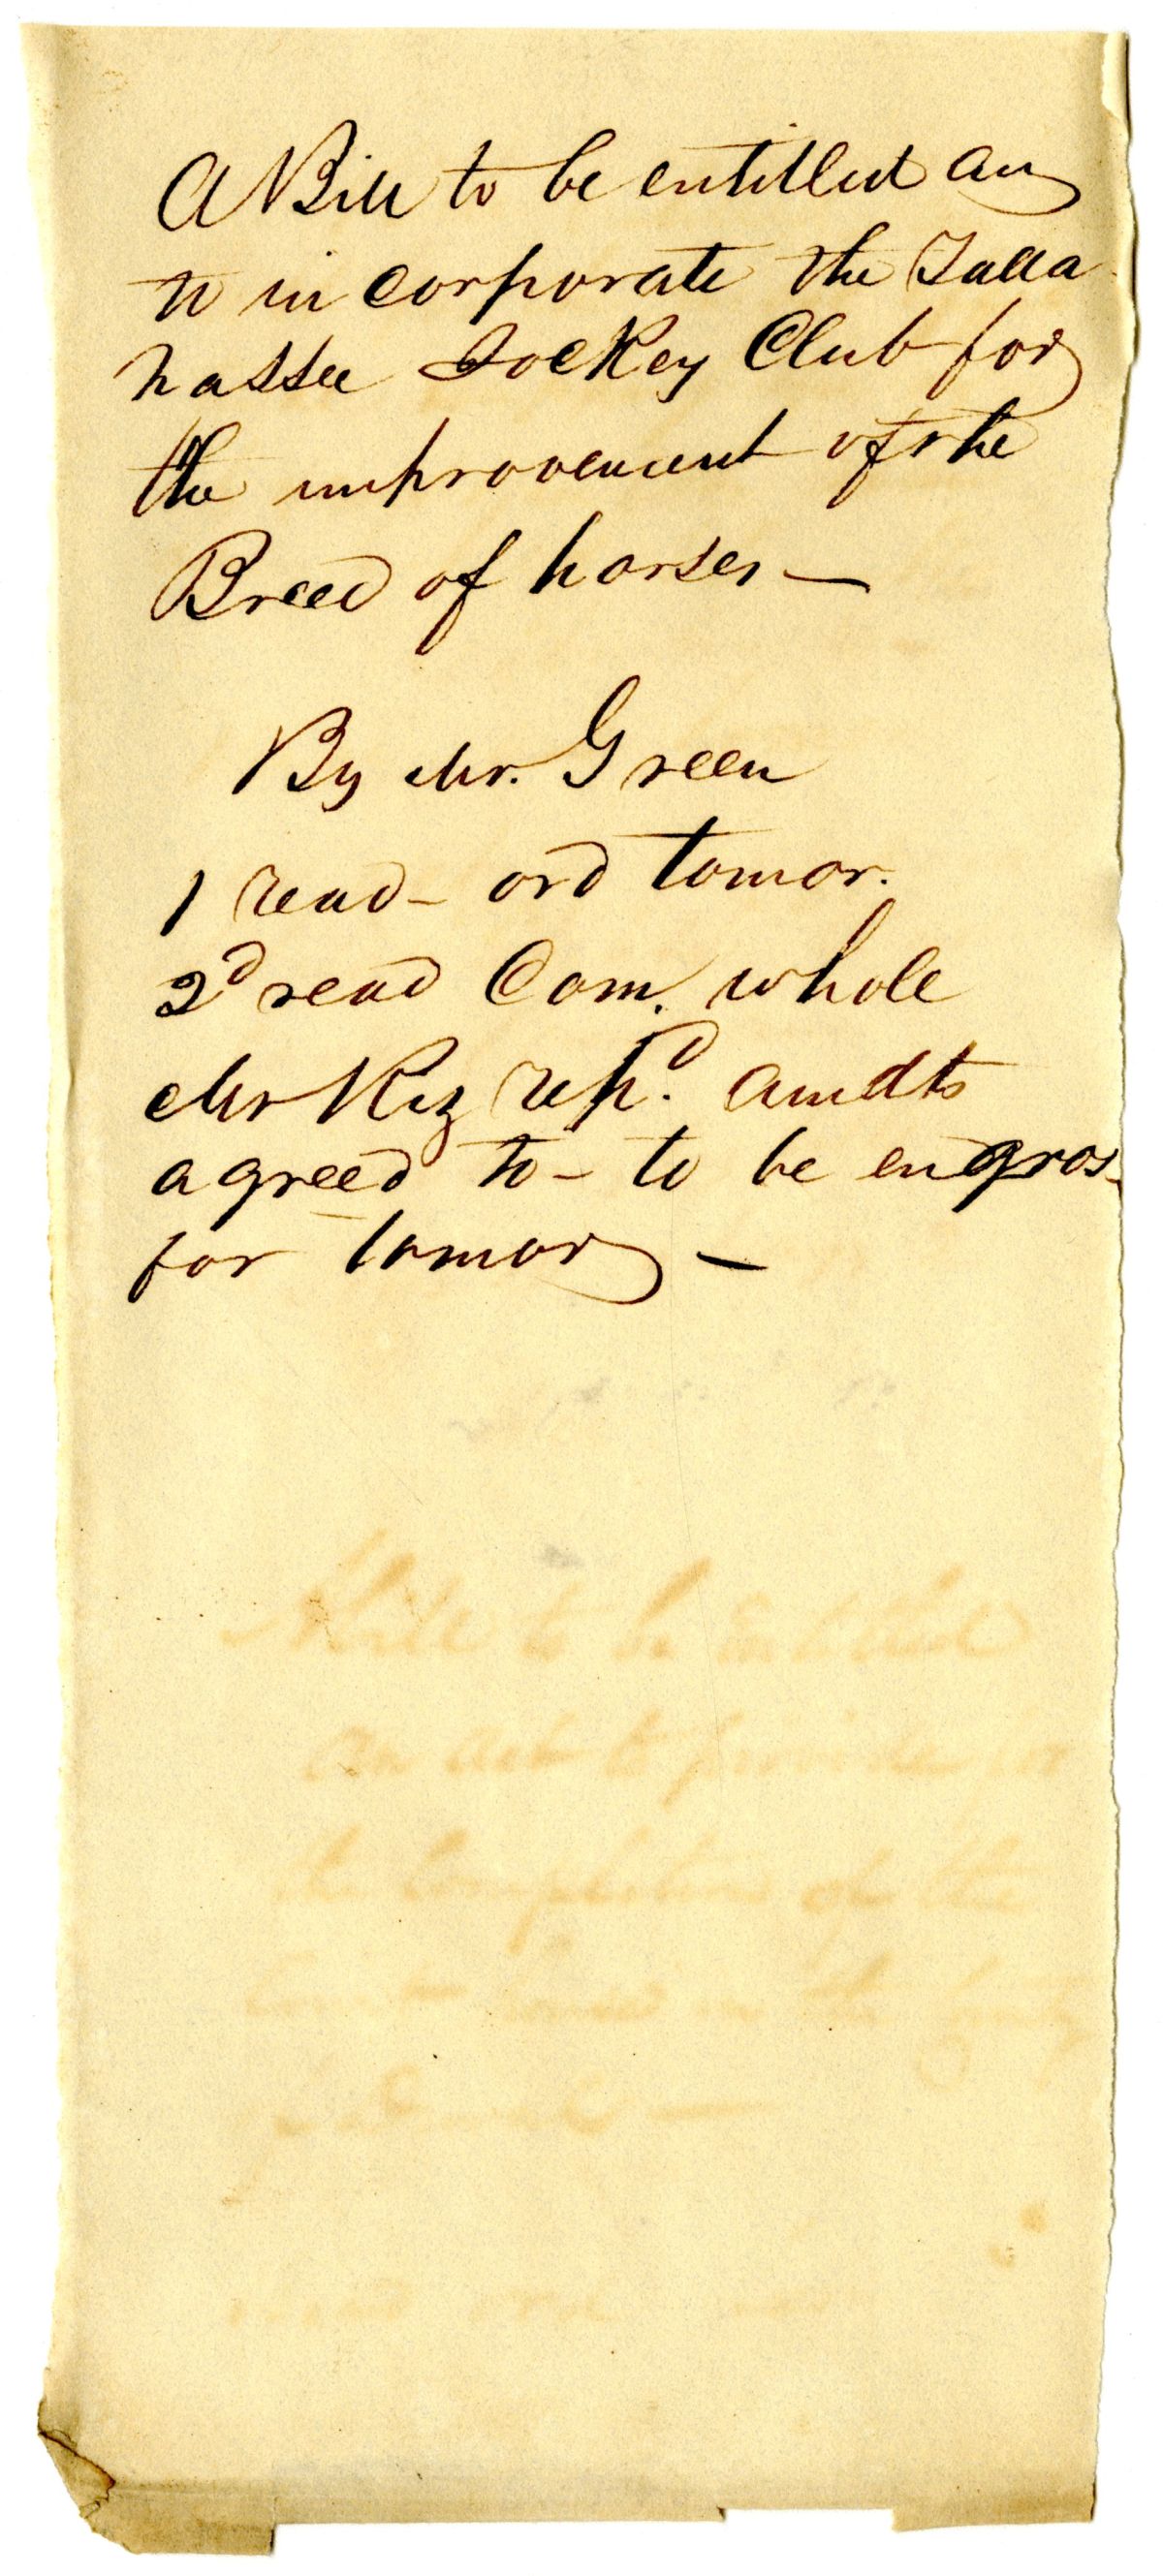 A Bill to be entitled an
to in corporate the Talla
hassee Jockey Club for
the improvement of the
Breed of horses —
By Mr. Green
1 read - ord tomor.
2d read Com. whole
Mr Kiz rep.d amdts
agreed to - to be engros-
for tomor —
to be entitled
an act to provide for
the completion of the